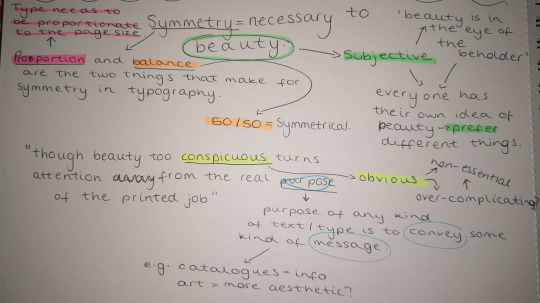 Type needs to
be proportionate
to the page size
Symmetry = necessary to
beauty.
'beauty is in
the eye of
the
beholder'
Subjective
Proportion and balance
are the two things that make for
symmetry in typography.
50/50 = Symmetrical.
everyone has
their own idea of
beauty → prefer
different things.
"though beauty too conspicuous turns
attention away from the real purpose
of the printed job"
obvious
non-essential
over-complicating?
purpose of any kind
of text/type is to convey some
kind of message.
e.g. catalogues = info
art = more aesthetic?